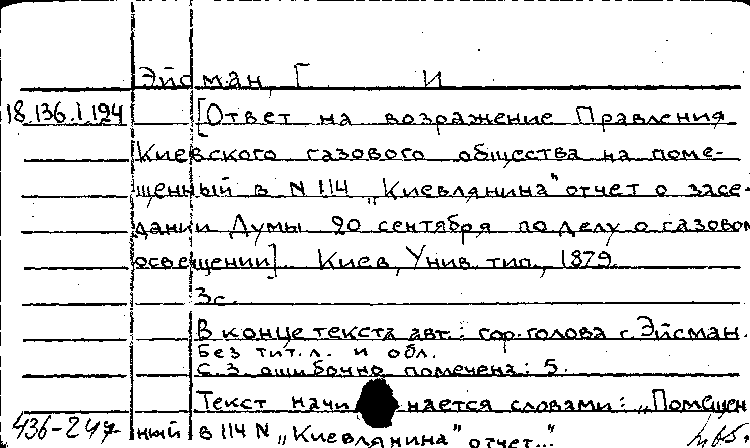 Эйсман, Г И
18.136.1.124 [Ответ на возражение Правления
Киевского газового общества на поме-
щенный в N 114 „Киевлянина" отчет о засе-
дании Думы 20 сентября по делу о газовом
освещении]. Киев, Унив. тип., 1879.
3с.
В конце текста авт.: гор. голова г. Эйсман.
Без тит. л. и обл.
С. 3 ошибочно помечена: 5.
Текст начинается словами: „Помещен
436-247 ный в 114 N „Киевлянина" отчет..."